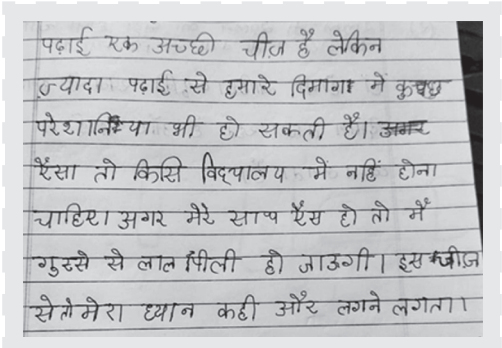 पढ़ाई एक अच्छी चीज़ है लेकिन
ज़्यादा पढ़ाई से हमारे दिमाग में कुछ
परेशानिया भी हो सकती है। अगर
ऐसा तो किसि विद्यालय में नहिं होना
चाहिए। अगर मेरे साथ ऐस हो तो मैं
गुस्से से लाल पिली हो जाऊगी। इस चीज़
से तो मेरा ध्यान कही और लगने लगता।